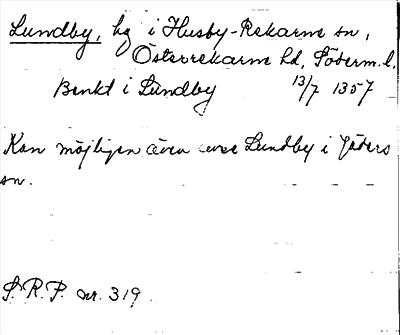 Lundby, hg i Husby-Rekarne sn,
Österrekarne hd, Söderm. l.
Benkt i Lundby 13/7 1357
Kan möjligen även avse Lundby i Jäders
sn.
S.R.P. nr. 319